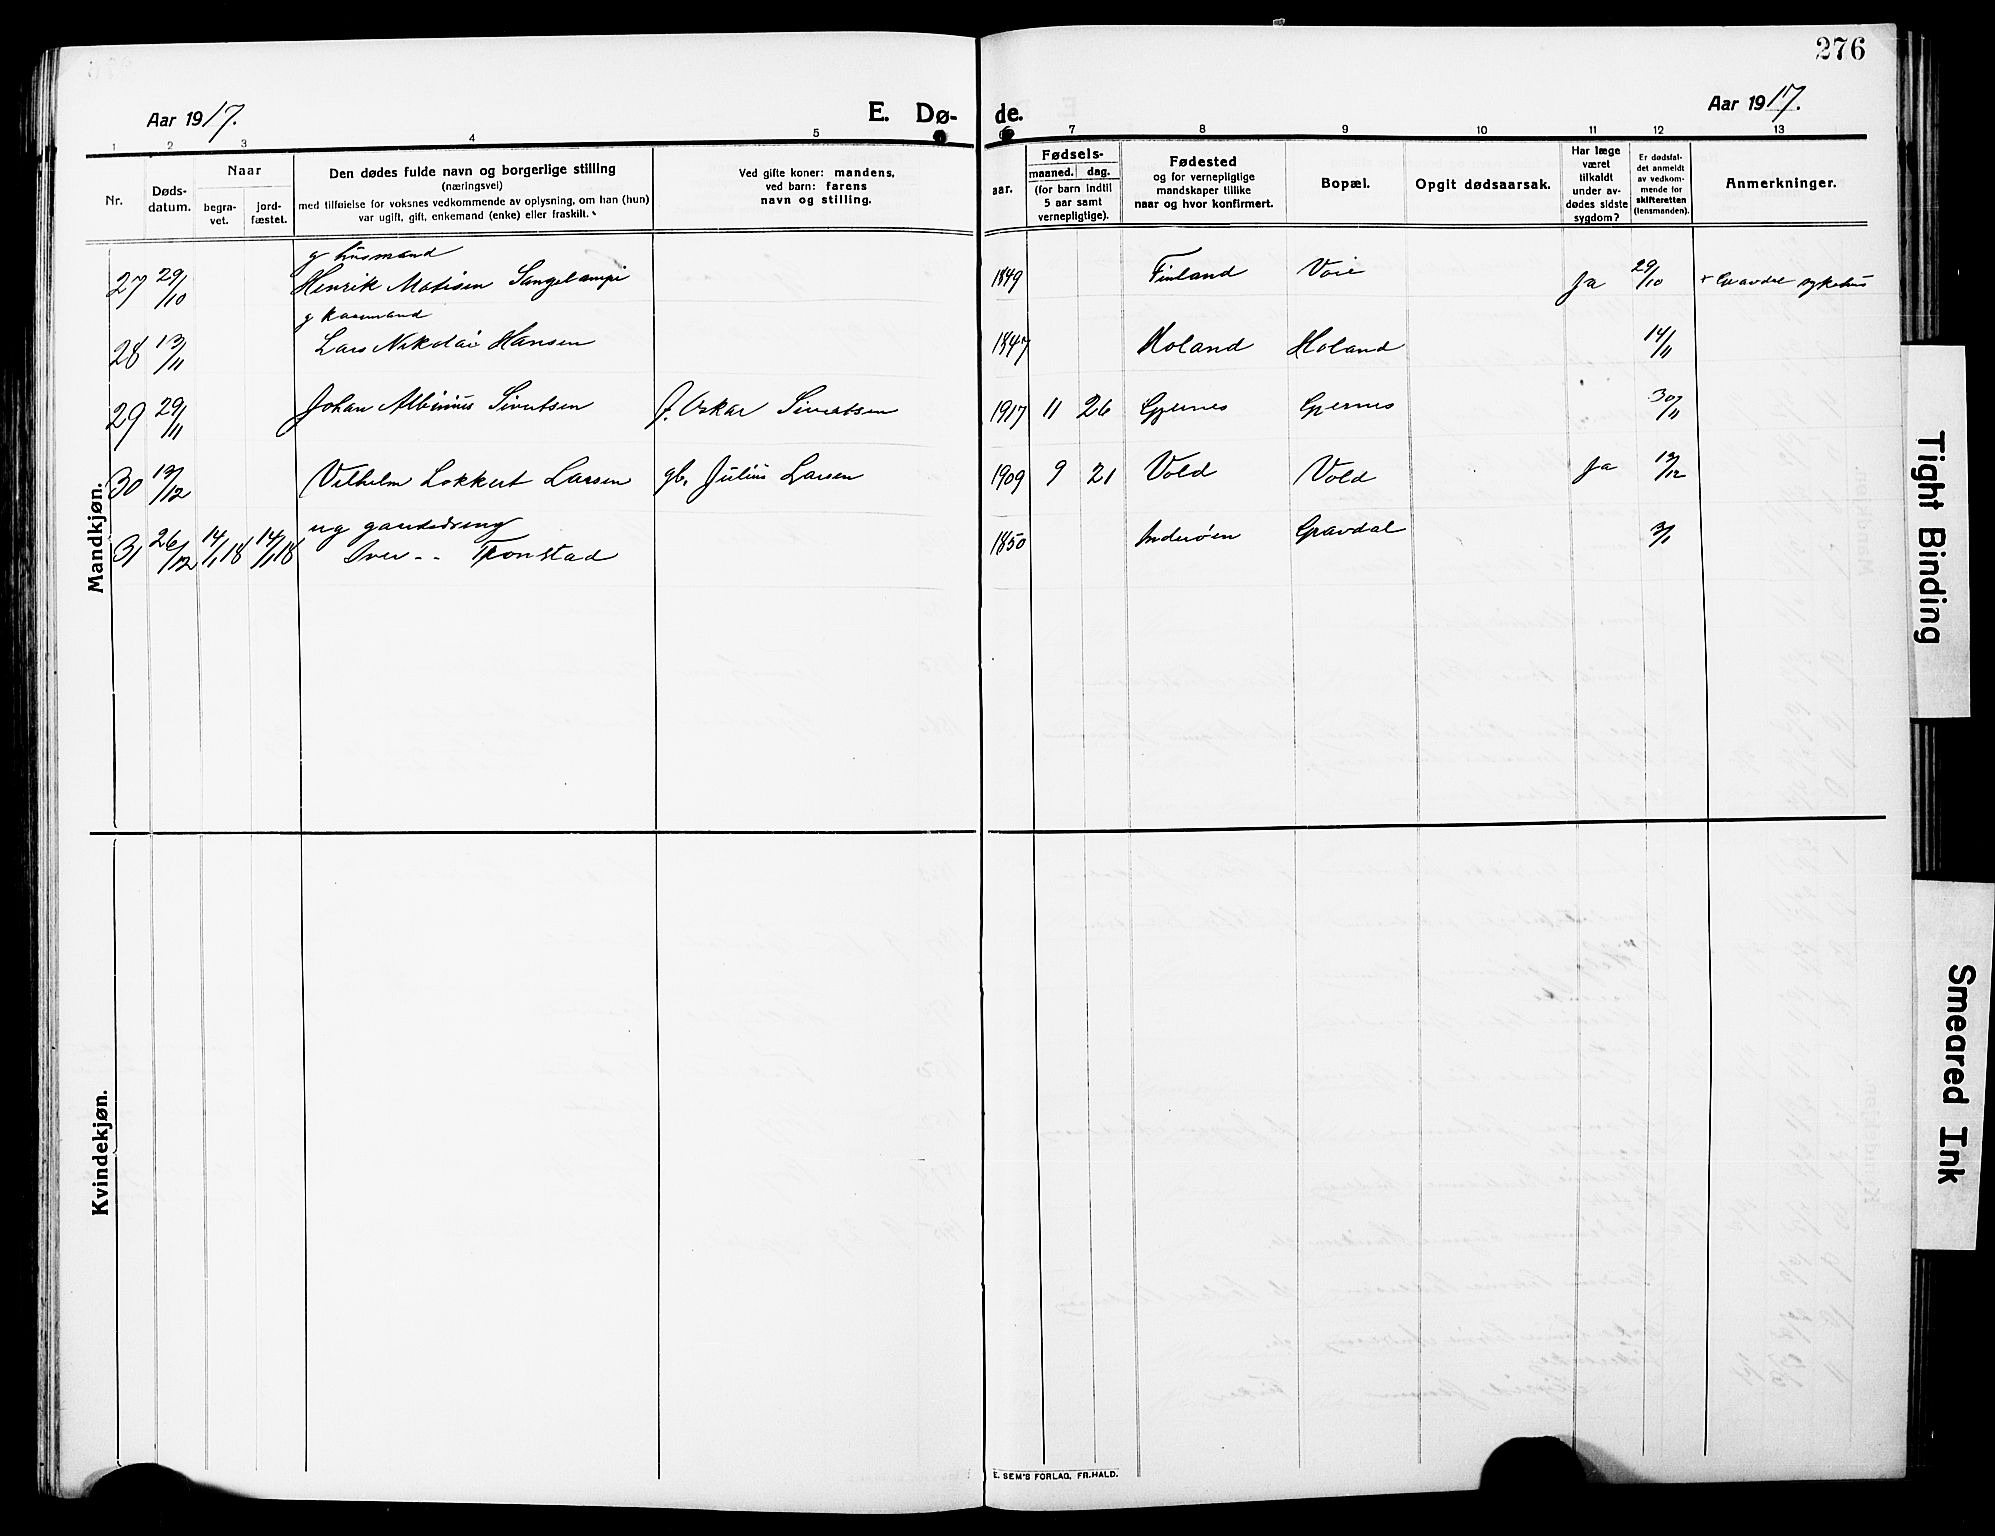 276
Aar 1917.
E. Dø-
de.
Aar 1917.
1 2 3 4 5 6 7 8 9 10 11 12 13
Nr.
Døds-
datum.
Naar
begra-
vet.
jord-
fæstet.
Den dødes fulde navn og borgerlige stilling
(næringsvei)
med tilføielse for voksnes vedkommende av oplysning, om han (hun)
var ugift, gift, enkemand (enke) eller fraskilt.
Ved gifte koner: mandens,
ved barn: farens
navn og stilling.
aar.
Fødsels-
maaned. dag.
(for barn indtil
5 aar samt
vernepligtige).
Fødested
og for vernepligtige
mandskaper tillike
naar og hvor konfirmert.
Bopæl.
Opgit dødsaarsak.
Har læge
været
tilkaldt
under av-
dødes sidste
sygdom?
Er dødsfal-
det anmeldt
av vedkom-
mende for
skifteretten
(lensmanden).
Anmerkninger.
Mandkjøn.
g husmand
27 29/10 Henrik Matisen Sangelampi 1849 Finland Voie Ja 29/10 + Gravdal sykehus
g kaarmand
28 13/11 Lars Nikolai Hansen 1847 Holand Holand 14/11
29 29/11 Johan Albinius Sivertsen f. Oskar Sivertsen 1917 11 26 Gjernes Gjernes 30/11
30 12/12 Vilhelm Lokkert Larsen gb. Julius Larsen 1909 9 21 Vold Vold Ja 12/12
ug gaardsdreng
31 26/12 14/1 18 14/1 18 Iver -- Tronstad 1850 Inderøen Gravdal 3/1
Kvindekjøn.
E. SEM'S FORLAG, FR.HALD.
Tight Binding
Smeared Ink